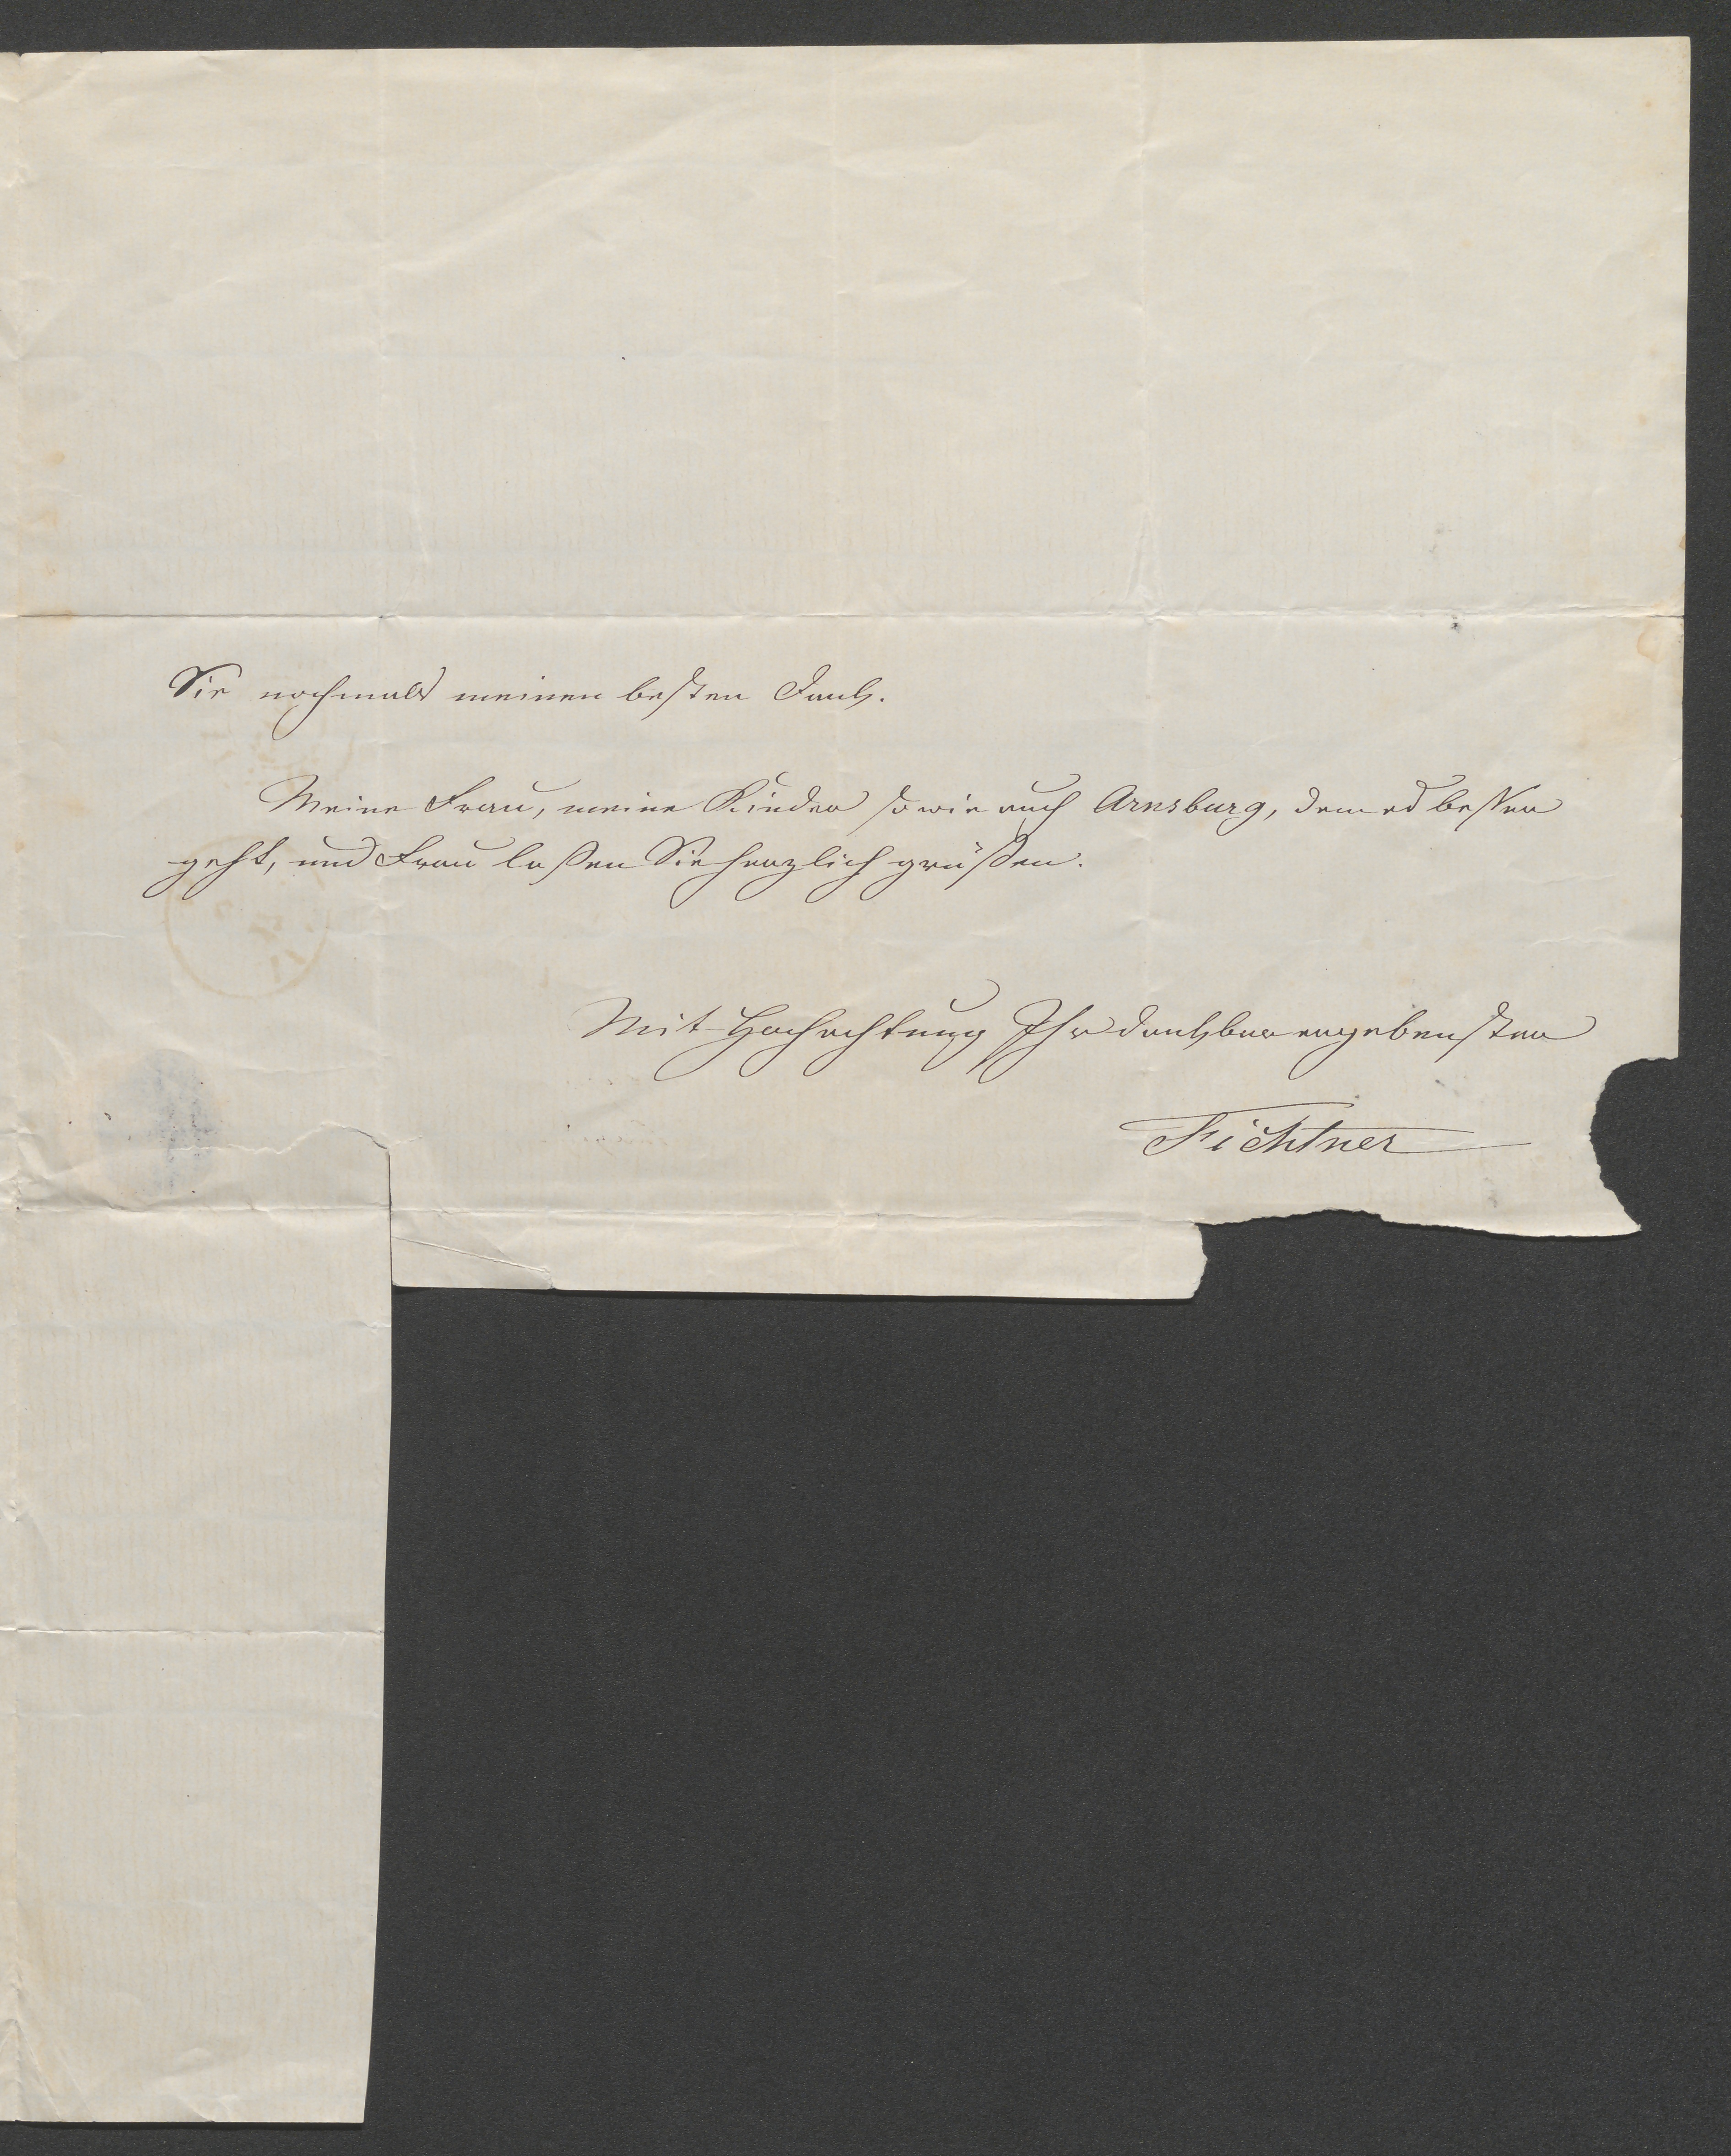 Sie nochmals meinen besten Dank.
Meine Frau, meine Kinder sowie auch Arnsburg, dem es besser
geht, und Frau laßen Sie herzlich grüßen.
Mit Hochachtung Ihr dankbar ergebenster
Fichtner